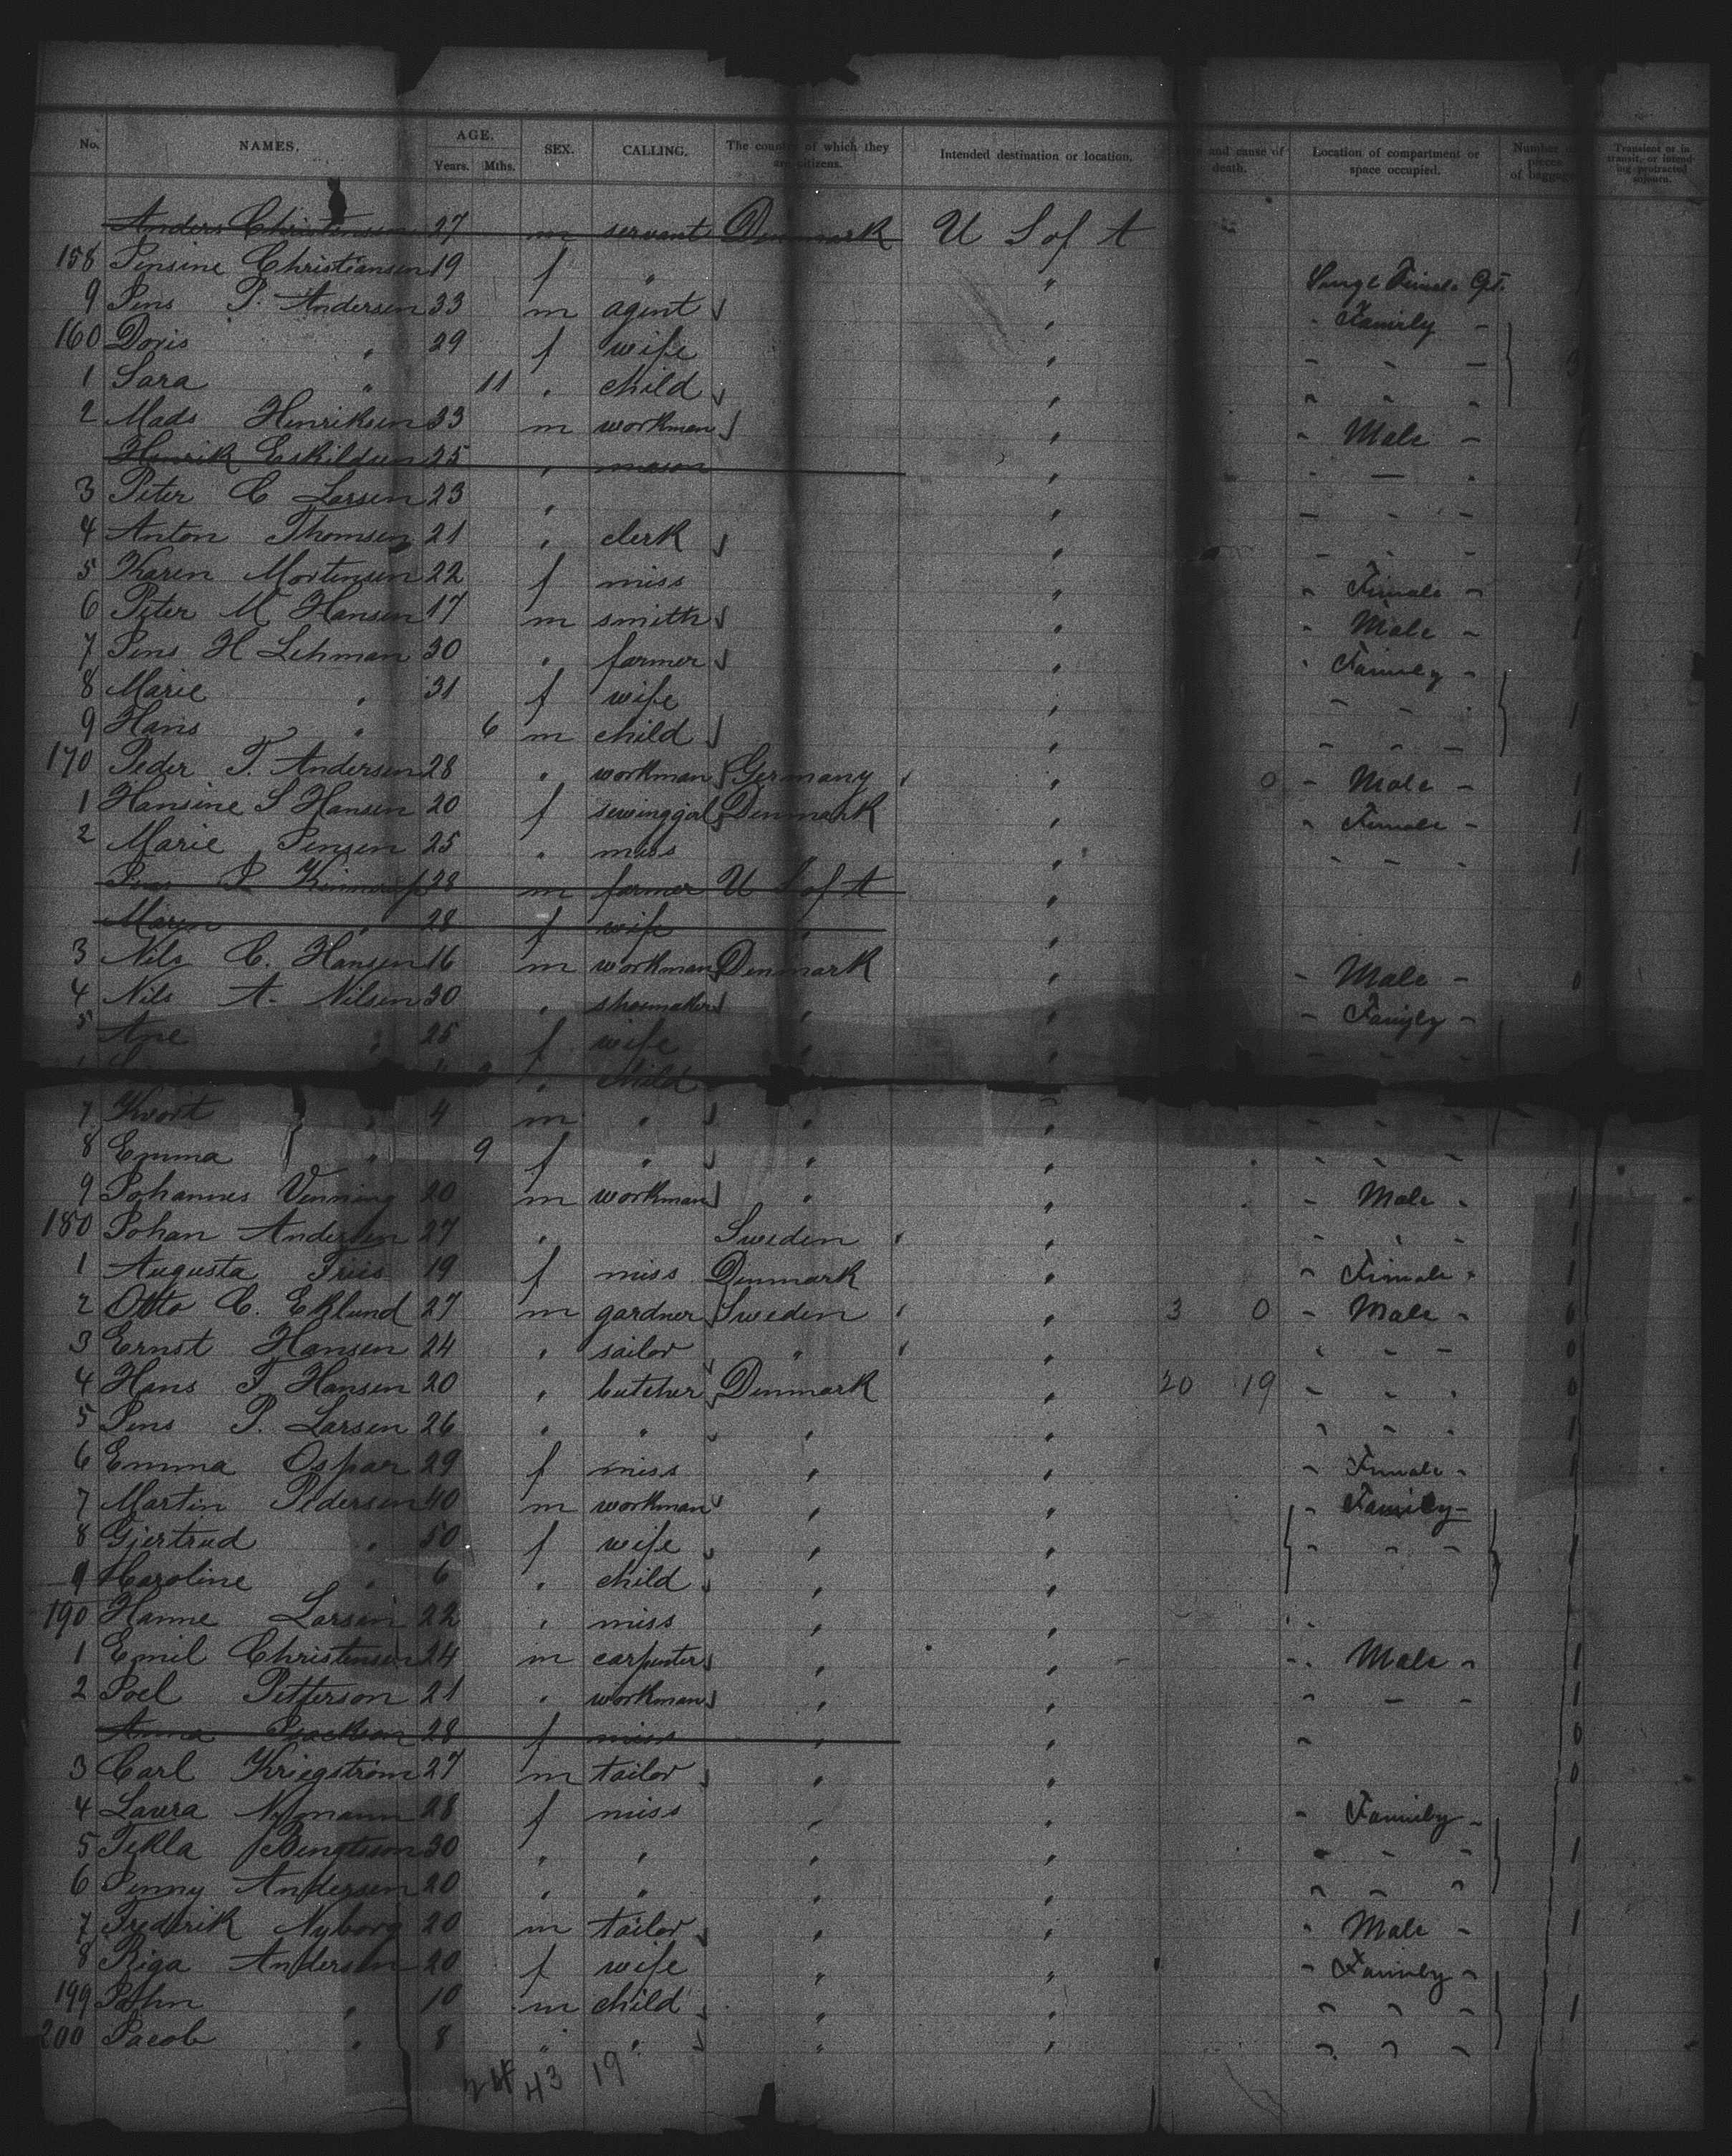 No. NAMES. AGE. Years. Mths. SEX. CALLING. The country of which they are citizens. Intended destination or location. and cause of death. Location of compartment or space occupied. Number of pieces of baggage Transient or in transit, or intending protracted sojourn.
Anders Christensen 27 m servant Denmark U S of A
158 Jensine Christiansen 19 f " " Single Female Qt.
9 Jens P. Andersen 33 m agent " - Family -
160 Doris " 29 f wife " - - -
1 Sara " 11 " child " " " "
2 Mads Henriksen 33 m workman " - Male -
Henrik Eskildsen 25 " mason " - - -
3 Peter C Larsen 23 " " - - - 1
4 Anton Thomsen 21 " clerk " - - - 1
5 Karen Mortensen 22 f miss " - Female - 1
6 Peter M Hansen 17 m smith " - Male - 1
7 Jens H Lehman 30 " farmer " - Family -
8 Marie " 31 f wife " - - - 1
9 Hans " 6 m child " - - -
170 Peder T. Andersen 28 " workman Germany " 0 - Male - 1
1 Hansine S Hansen 20 f sewinggal Denmark " - Female - 1
2 Marie Jensen 25 " miss " " - - - 1
Jens P 28 m farmer U S of A "
Maren " 28 f wife " "
3 Nils C. Hansen 16 m workman Denmark " - Male - 0
4 Nils A. Nilsen 30 " shoemaker " " - Family -
5 Ane " 25 f wife " " - - -
" child "
7 " 4 m " " " - - -
8 Emma " 9 f " " " - - -
9 Johannes Venning 20 m workman " " - Male - 1
180 Johan Andersen 27 " Sweden " - - - 1
1 Augusta Friis 19 f miss Denmark " - Female - 1
2 Otto C. Eklund 27 m gardner Sweden " 3 0 - Male - 0
3 Ernst Hansen 24 " sailor " " - - - 0
4 Hans F Hansen 20 " butcher Denmark " 20 19 - - - 0
5 Jens P. Larsen 26 " " " " - - - 1
6 Emma Ospar 29 f miss " " - Female - 1
7 Martin Pedersen 40 m workman " " - Family -
8 Gjertrud " 50 f wife " " - - - 1
9 Karoline " 6 " child " "
190 Hanne Larsen 22 " miss " " " -
1 Emil Christensen 24 m carpenter " " - Male - 1
2 Joel Petterson 21 " workman " " - - - 1
Anna 28 f miss " " - 0
3 Carl Kriegström 27 m tailor " " 0
4 Laura Nymann 28 f miss " " - Family -
5 Tekla Bengtsson 30 " " " " - - - 1
6 Jenny Andersen 20 " " " " - - -
7 Frederik Nyborg 20 m tailor " " - Male - 1
8 Riga Andersen 20 f wife " " - Family -
199 John " 10 m child " " - - - 1
200 Jacob " 8 " " " " - - -
24 43 19